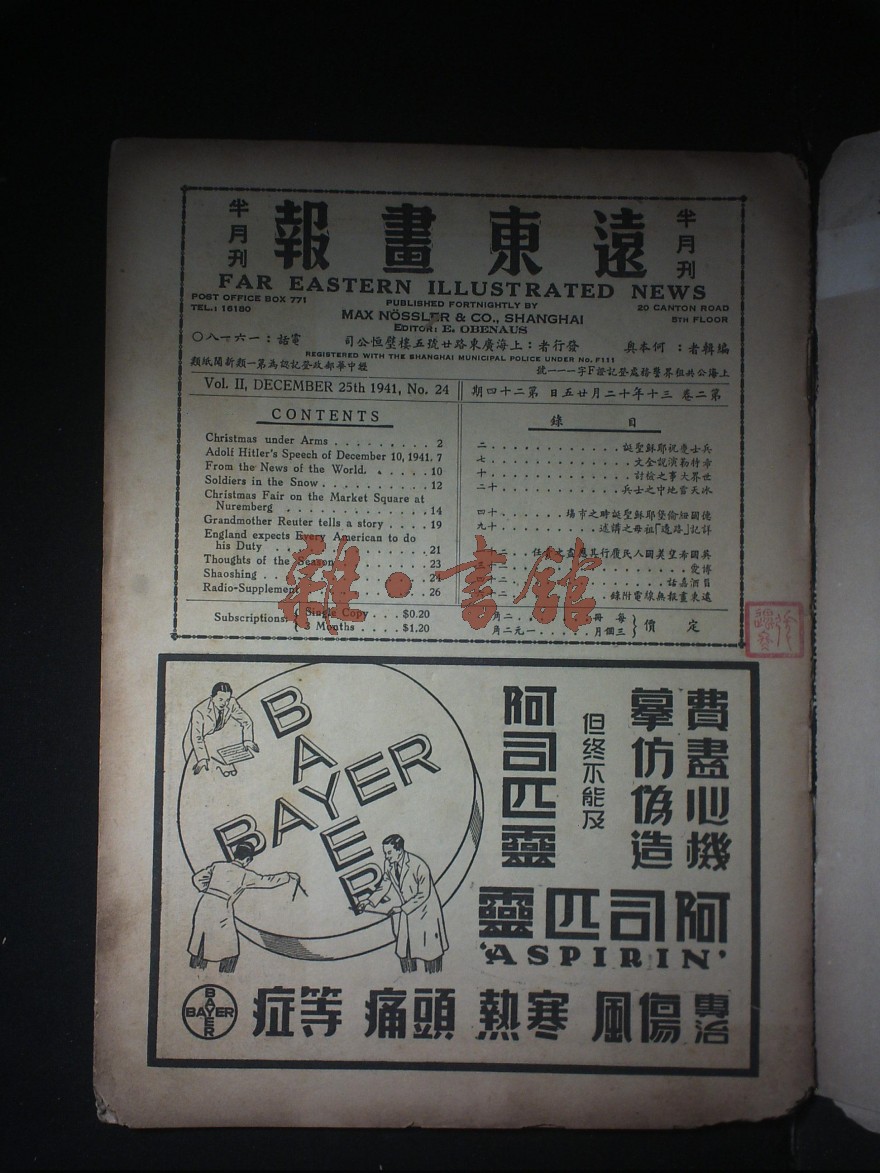 半月刊
遠東畫報
半月刊
FAR EASTERN ILLUSTRATED NEWS
POST OFFICE BOX 771
TEL.: 16180
PUBLISHED FORTNIGHTLY BY
MAX NÖSSLER & CO., SHANGHAI
EDITOR: E. OBENAUS
20 CANTON ROAD
5TH FLOOR
編輯者:何本與
發行者:上海廣東路廿號五樓壁恒公司
電話:一六一八〇
REGISTERED WITH THE SHANGHAI MUNICIPAL POLICE UNDER No. F111
上海公共租界警務處登記證F字一一一號
經中華郵政登記認為第一類新聞紙類
Vol. II, DECEMBER 25th 1941, No. 24
第二卷 三十年十二月廿五日 第二十四期
CONTENTS
Christmas under Arms . . . . . . . . . 2
Adolf Hitler's Speech of December 10, 1941. 7
From the News of the World. . . . . . . 10
Soldiers in the Snow . . . . . . . . . . 12
Christmas Fair on the Market Square at
Nuremberg . . . . . . . . . . . . 14
Grandmother Reuter tells a story . . . . 19
England expects Every American to do
his Duty . . . . . . . . . . . . 21
Thoughts of the Season . . . . . . . 23
Shaoshing . . . . . . . . . . 24
Radio-Supplement . . . . . . . . 26
目錄
兵士慶祝耶穌聖誕 . . . . . . . . . . . . 二
希特勒演說全文 . . . . . . . . . . . . 七
世界大事之檢討 . . . . . . . . . . . . 十
冰天雪地中之兵士 . . . . . . . . . . 十二
德國紐倫堡耶穌聖誕時之市場 . . . . . . 十四
詳記「路透」祖母之講述 . . . . . . 十九
英國希望美國人民履行其應盡之責任 . . 二十一
博愛
遠東畫報無線電附錄
Subscriptions: { Single Copy . . . $0.20
{ 3 Months . . . . $1.20
定價
每冊 . . . . 二角
三個月 . . . . 一元二角
雜·書館
費盡心機
摹仿偽造
但終不能及
阿司匹靈
BAYER
BAYER
阿司匹靈
'ASPIRIN'
專治傷風 寒熱 頭痛 等症
BAYER
BAYER